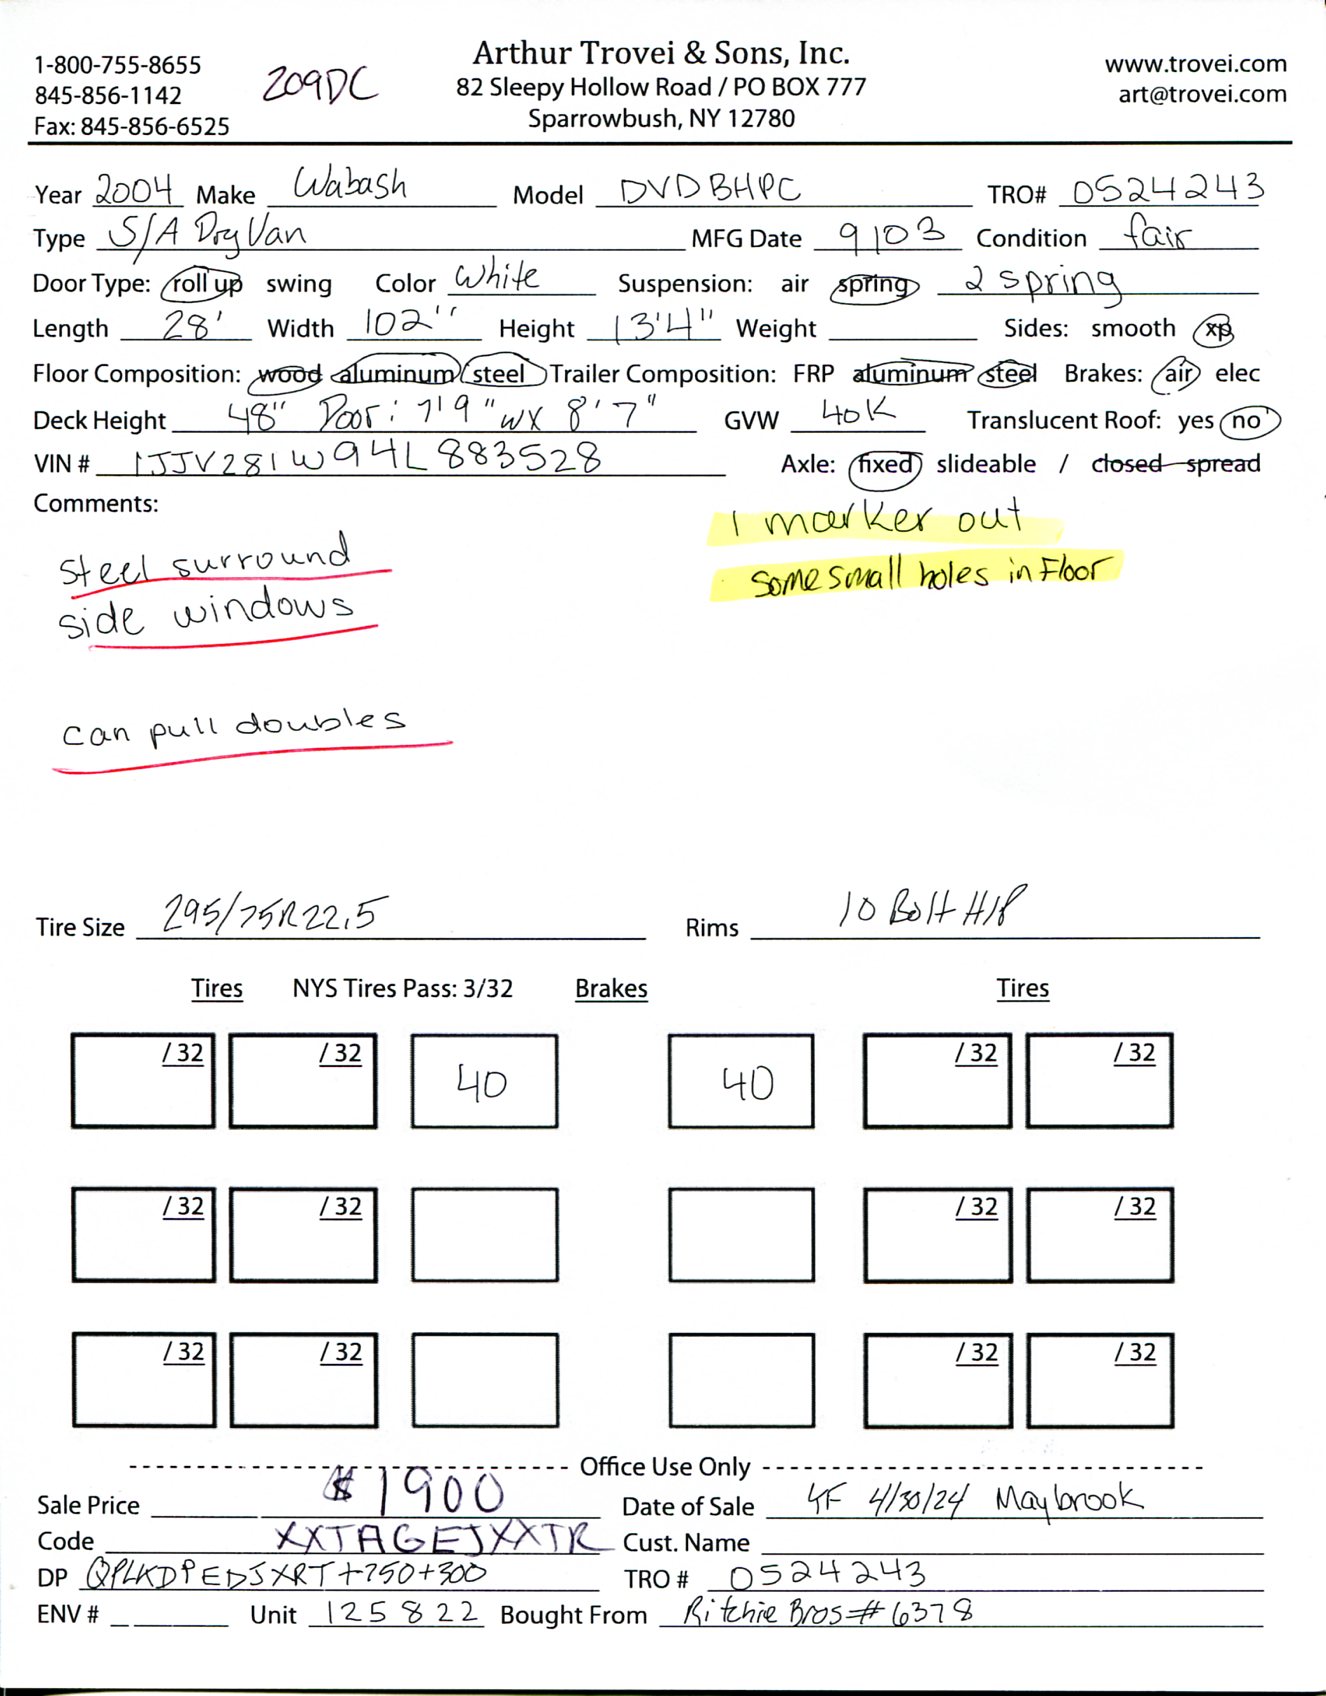 1-800-755-8655
845-856-1142
Fax: 845-856-6525
209DC
Arthur Trovei & Sons, Inc.
82 Sleepy Hollow Road / PO BOX 777
Sparrowbush, NY 12780
www.trovei.com
art@trovei.com
Year 2004 Make Wabash Model DVDBHPC TRO# 0524243
Type S/A Dry Van MFG Date 9/03 Condition fair
Door Type: roll up swing Color White Suspension: air spring 2 spring
Length 28' Width 102'' Height 13'4" Weight Sides: smooth xp
Floor Composition: wood aluminum steel Trailer Composition: FRP aluminum steel Brakes: air elec
Deck Height 48" Door: 7'9" wx 8'7" GVW 40K Translucent Roof: yes no
VIN # 1JJV281W94L883528 Axle: fixed slideable / closed spread
Comments:
1 marker out
some small holes in Floor
steel surround
side windows
can pull doubles
Tire Size 295/75R22.5 Rims 10 Bolt H/P
Tires NYS Tires Pass: 3/32 Brakes Tires
/ 32 / 32 40 40 / 32 / 32
/ 32 / 32 / 32 / 32
/ 32 / 32 / 32 / 32
Office Use Only
Sale Price $1900 Date of Sale 4/30/24 Maybrook
Code XXTAGEJXXTR Cust. Name
DP QPLKDPEDJXRT+750+300 TRO # 0524243
ENV # Unit 125822 Bought From Ritchie Bros # 6378